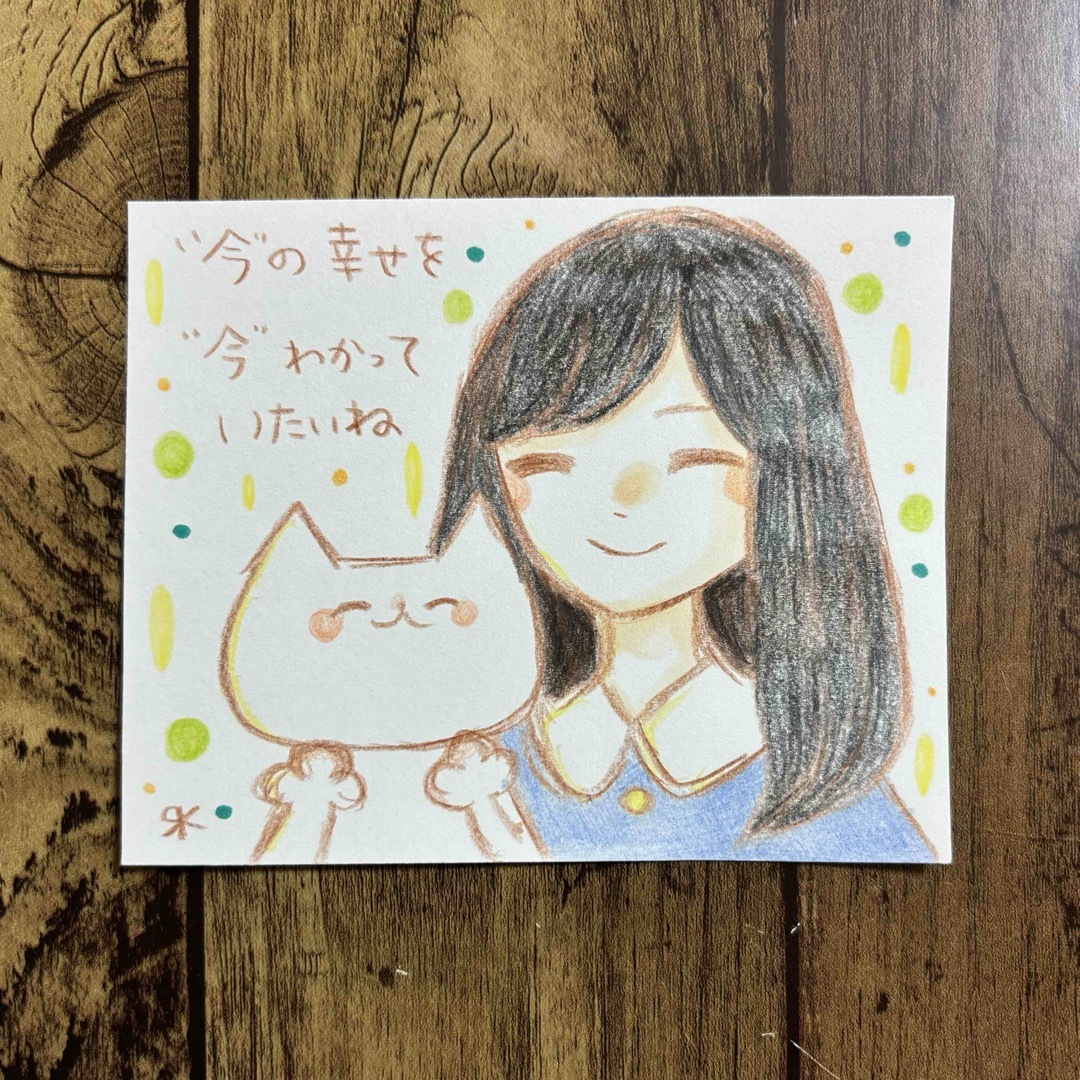 "今"の幸せを
"今"わかって
いたいね